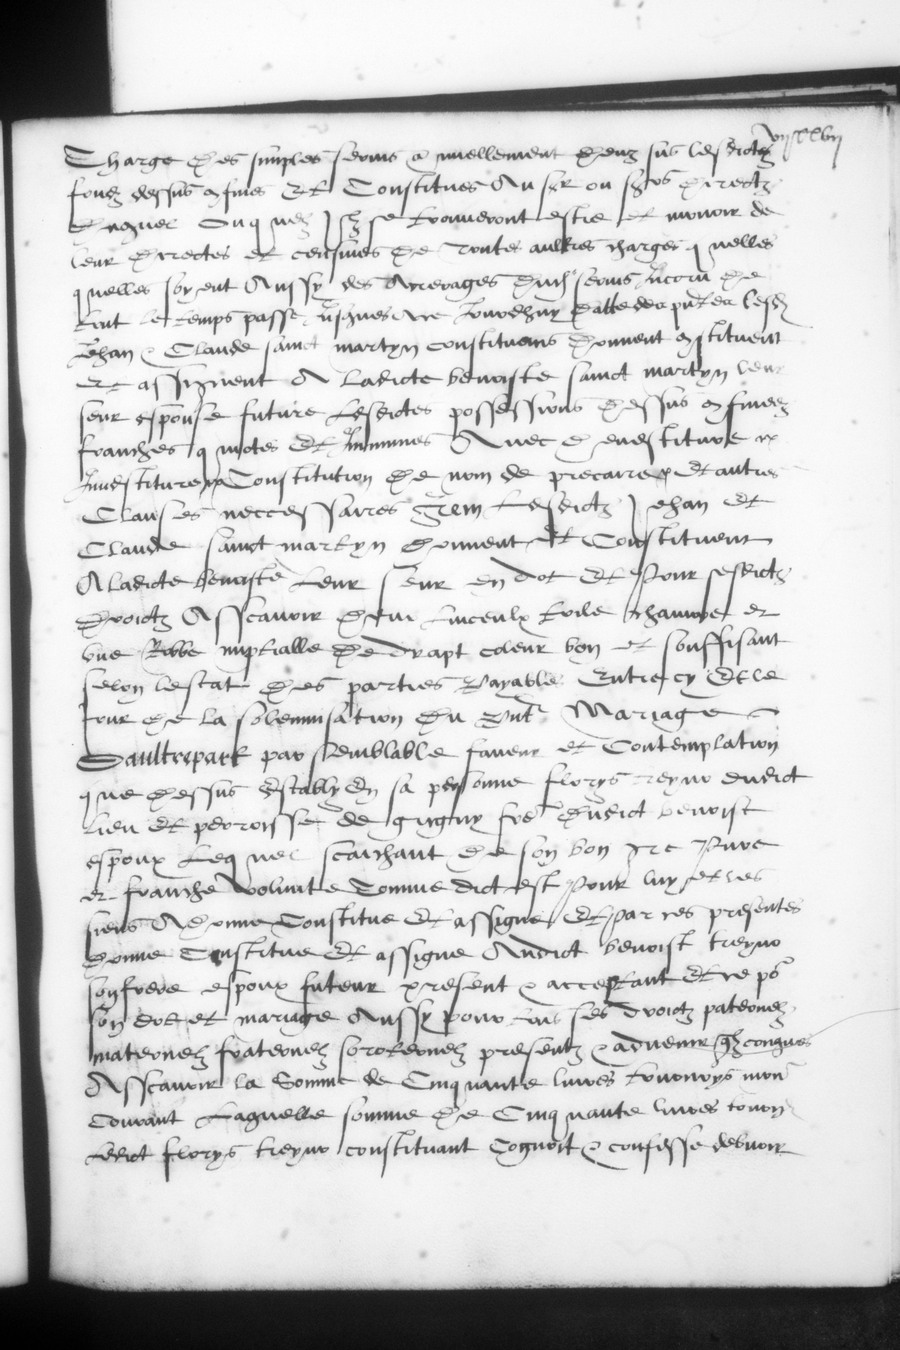 Charge des simples servis annuellement deuz sus lesdictz
fondz dessus confines Et Constitues Au sgr ou sgrs directz
duquel ou quelz Ilz se trouveront estre et mouvoir de
leur directes et censives De toutes aultres charges quelles
quelles soyent Aussy des Arreraiges dudict servis Encoru de
tout le temps passe Jusques Are Jourdhuy datte des putes lesd
Jehan & Claude sainct martyn constituans donnent constituent
Et assignent A ladicte benoiste sainct martyn leur
seur espouse future Lesdictes possessions dessus confinez
franches quictes Et Immunes Avec devestiture
Investiture Constitution De nom de precaire Et autres
Clauses neccessaires Item Lesdictz Jehan Et
Claude sainct martyn donnent Et Constituent
A ladicte benoiste Leur seur en dot Et Pour sesdictz
droictz Asscavoir Linceulx toile chanvoz et
une Robbe nuptialle De drapt coleur bon et souffisant
selon lestat des parties Payable Entre cy Et le
jour De la solemnisation du pnt Mariage
Daultrepart par semblable faveur et Contemplation
que dessus Establi En sa personne florys treyno dudict
lieu Et perroisse de grigny fre dudict benoist
espoux Lequel scaichant De son bon gre Pure
et franche volunte Comme dict est Pour luy et les
siens A donne Constitue Et assigne Et Par ces presentes
donne Constitue Et assigne Audict benoist treyno
son frere espoux futeur present & acceptant Et ce po
son dot et mariage Aussy pour tous ses droictz paternelz
maternelz fraternelz sororternelz presentz & advenir
Asscavoir la Somme de Cinquante livres tournoys mon
Courant Laquelle somme De Cinquante livres tourn
Ledict florys treyno constituant Cognoit & confesse debvoir